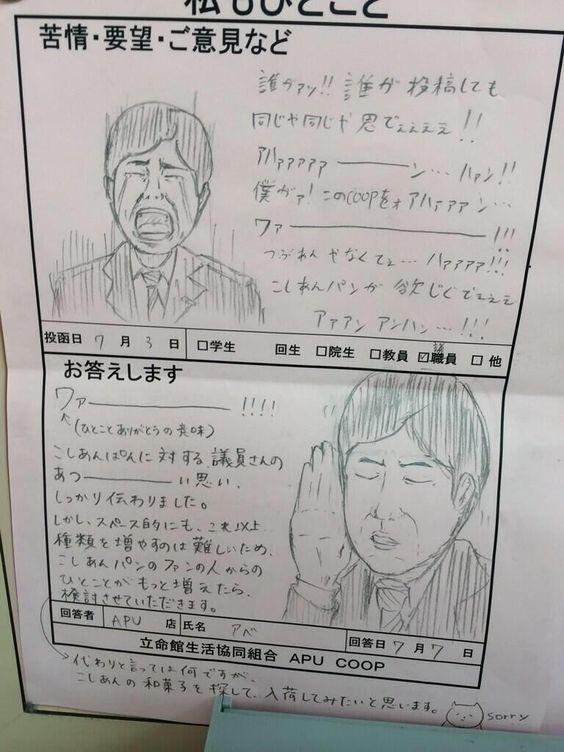 私もひとこと
苦情・要望・ご意見など
誰がァッ!! 誰が投稿しても
同じや同じや思でぇぇぇぇ!!
アハァァァァ――ン… ハァン!!
僕がァ! このCOOPをォ アハァァァン…
ワァ――――!!!
つぶあんやなくてぇ… ハァァァァ!!!
こしあんパンが欲じぐでぇぇぇ
アァアン アンハン…!!!
投函日 7 月 3 日 □学生 回生 □院生 □教員 ☑議職員 □他
お答えします
ワァ――――!!!!
(ひとことありがとうの意味)
こしあんぱんに対する議員さんの
あつ――――い思い、
しっかり伝わりました。
しかし、スペース的にも、これ以上
種類を増やすのは難しいため、
こしあんパンのファンの人からの
ひとことがもっと増えたら、
検討させていただきます。
回答者 APU 店 氏名 アベ 回答日 7 月 7 日
立命館生活協同組合 APU COOP
代わりと言っては何ですが、
こしあんの和菓子を探して、入荷してみたいと思います。 sorry